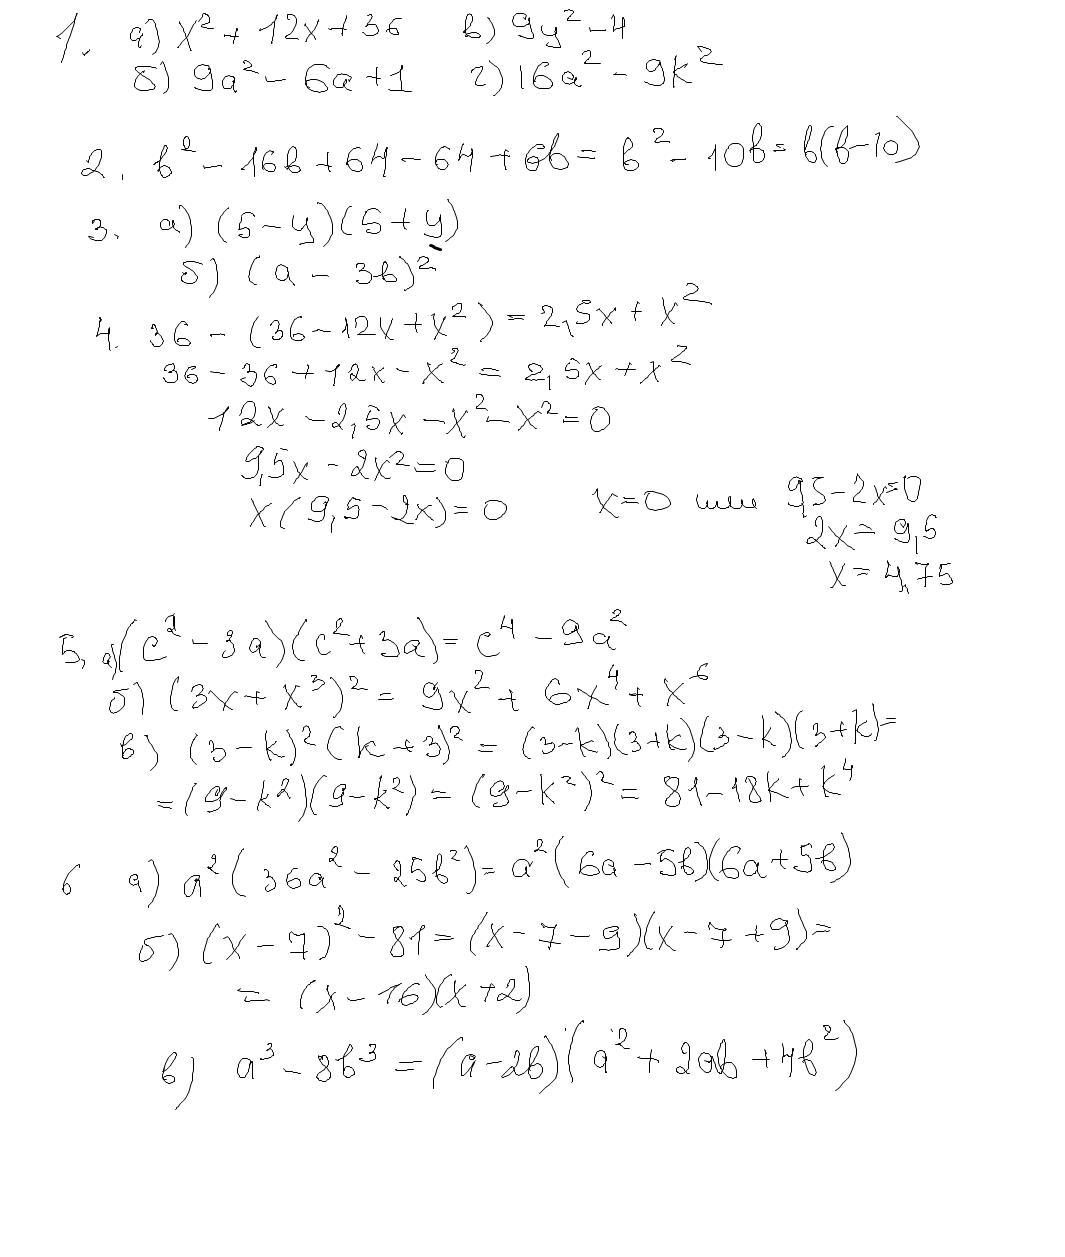 1. а) x² + 12x + 36 в) 9y² - 4
б) 9a² - 6a + 1 г) 16a² - 9k²
2. b² - 16b + 64 - 64 + 6b = b² - 10b = b(b-10)
3. а) (5 - y)(5 + y)
б) (a - 3b)²
4. 36 - (36 - 12x + x²) = 2,5x + x²
36 - 36 + 12x - x² = 2,5x + x²
12x - 2,5x - x² - x² = 0
9,5x - 2x² = 0
x(9,5 - 2x) = 0 x = 0 или 9,5 - 2x = 0
2x = 9,5
x = 4,75
5, а) (c² - 3a)(c² + 3a) = c⁴ - 9a²
б) (3x + x³)² = 9x² + 6x⁴ + x⁶
в) (3 - k)² (k + 3)² = (3-k)(3+k)(3-k)(3+k) =
= (9 - k²)(9 - k²) = (9 - k²)² = 81 - 18k + k⁴
6 а) a² (36a² - 25b²) = a² (6a - 5b)(6a + 5b)
б) (x - 7)² - 81 = (x - 7 - 9)(x - 7 + 9) =
= (x - 16)(x + 2)
в) a³ - 8b³ = (a - 2b)(a² + 2ab + 4b²)